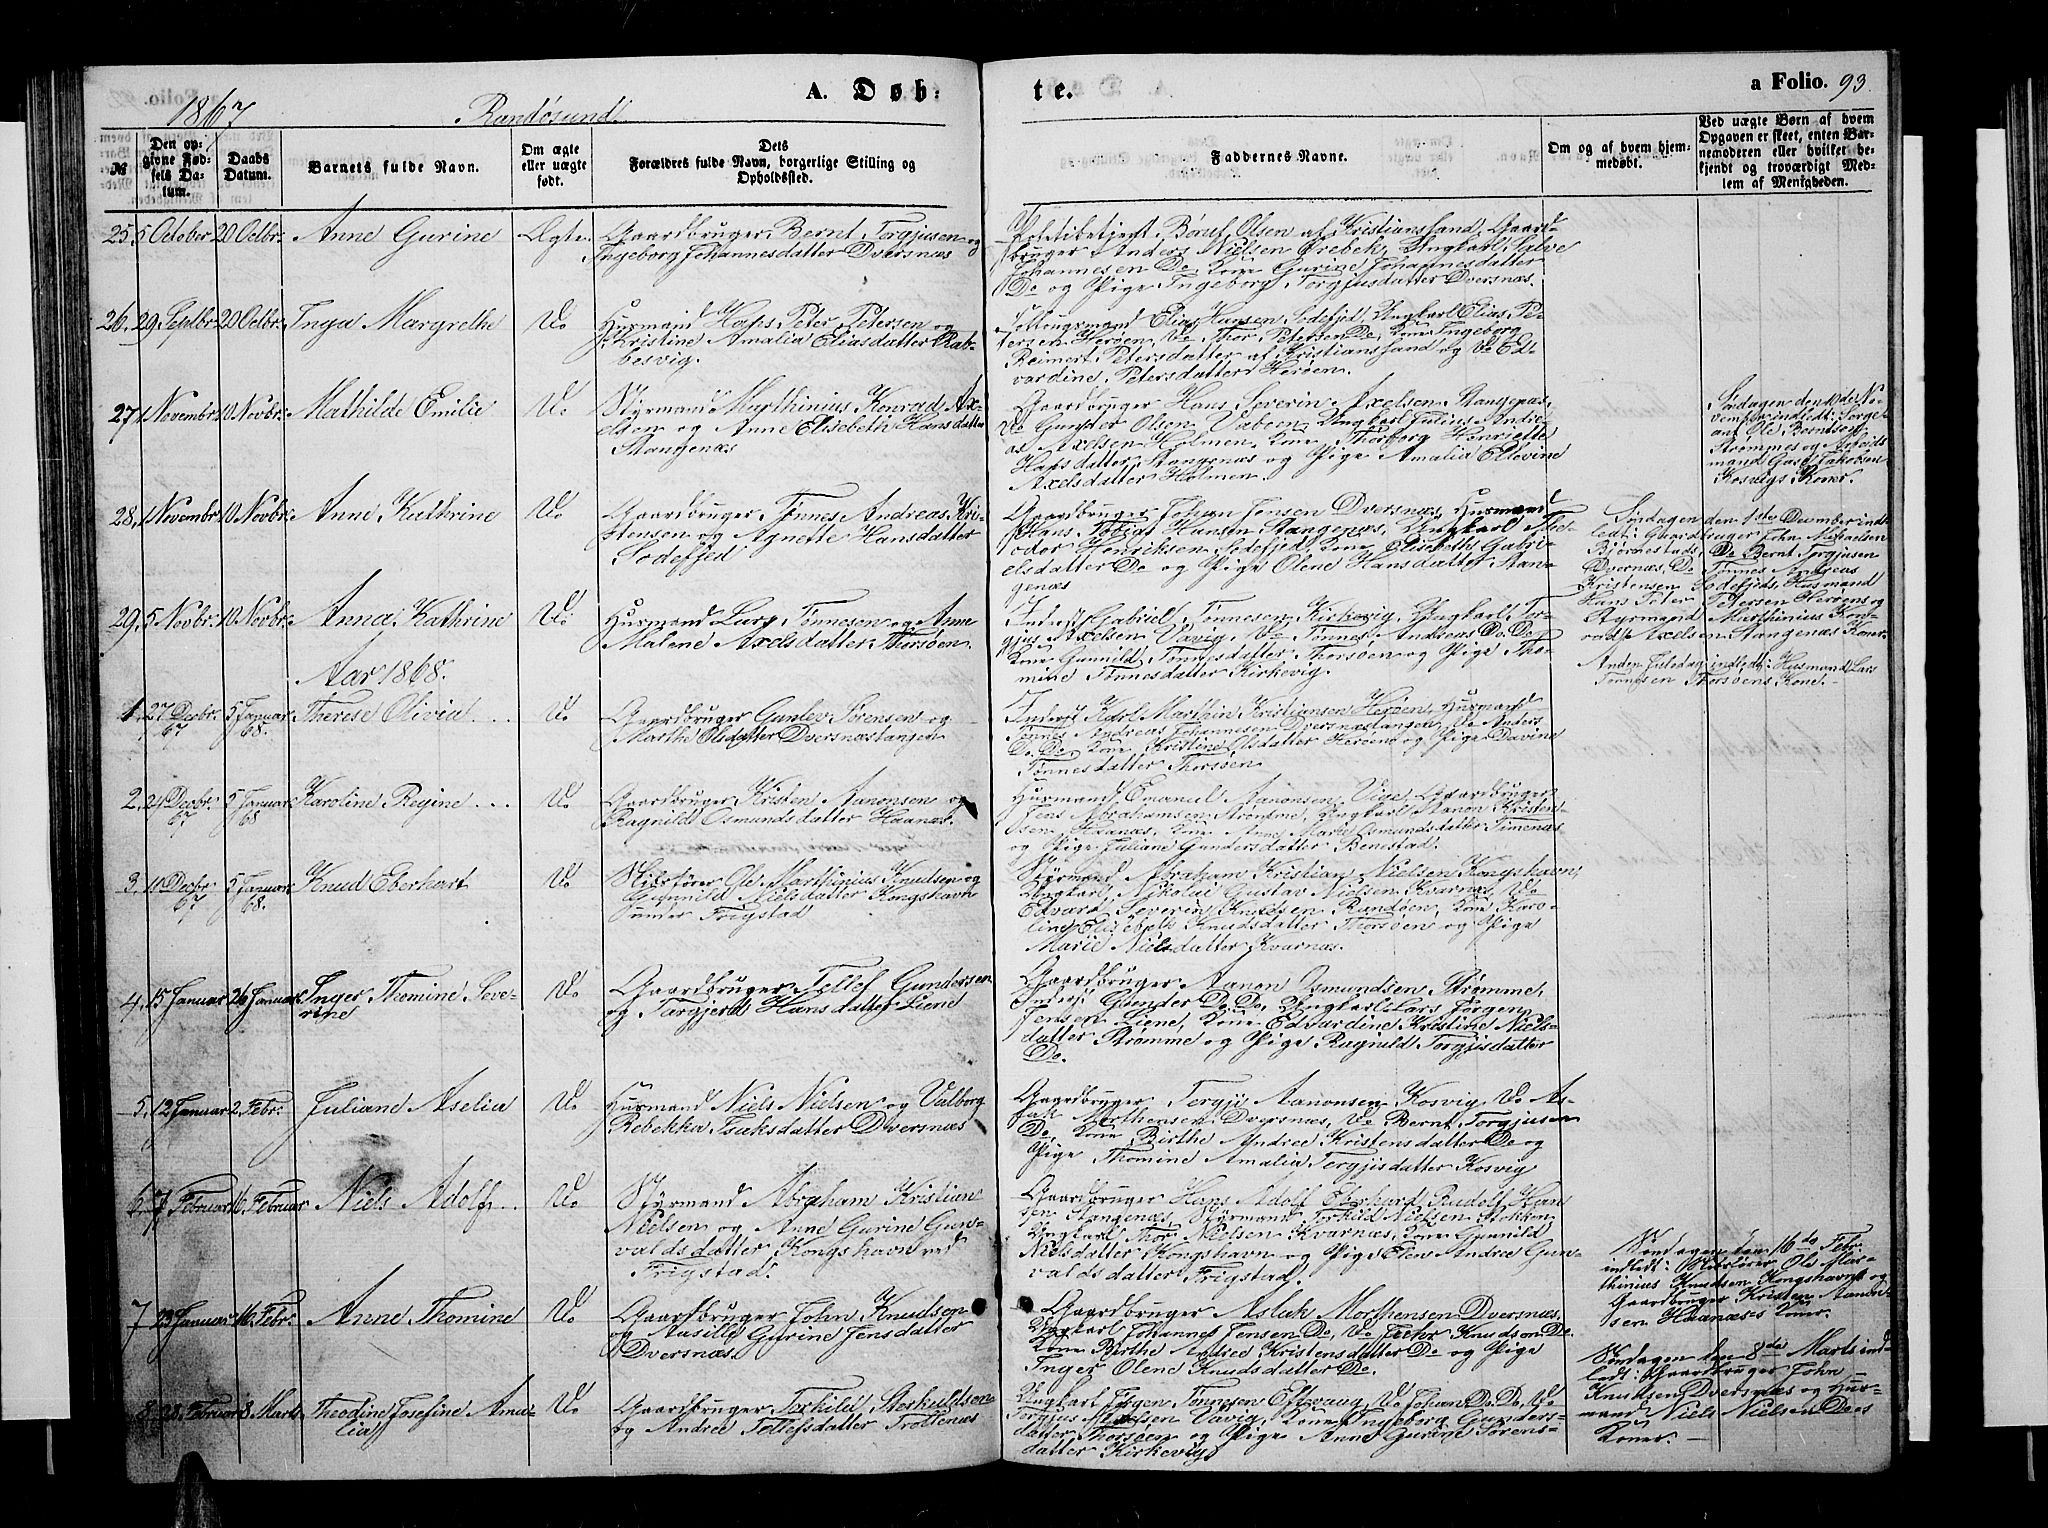 1867 Randøsund.
A. Døb-
te.
a Folio. 93
№
Den op-
givne Fød-
sels Da-
tum.
Daabs
Datum.
Barnets fulde Navn.
Om ægte
eller uægte
født.
Dets
Forældres fulde Navn, borgerlige Stilling og
Opholdssted.
Faddernes Navne.
Om og af hvem hjem-
medøbt.
Ved uægte Børn af hvem
Opgaven er skeet, enten Bar-
nemoderen eller hvilket be-
kjendt og troværdigt Med-
lem af Menigheden.
25. 5 October 20 Octbr. Anne Gurine Ægte. Gaardbruger Bernt Torgjusen og
Ingeborg Johannesdatter Dversnæs
Politibetjent Børuf Olsen af Kristianssand, Gaard-
bruger Anders Nielsen Ørebek, Ungkarl Salve
Johannesen Do, Kone Gurine Johannesdatter
Do og Pige Ingeborg Torgjusdatter Dversnæs.
26. 29 Septbr. 20 Octbr. Inga Margrethe Do Husmand Hans Peter Petersen og
Kristine Amalia Eliasdatter Rab-
besvig.
Elias Hansen Sodefjed, Ungkarl Elias Pe-
tersen Herøen, Do Thor Petersen Do, Kone Ingeborg
Reimert Petersdatter af Kristianssand og Do Ed-
vardine Petersdatter Herøen.
27. 1 Novembr. 10 Novbr. Mathilde Emilie Do Styrmand Marthinius Konrad Ax-
elsen og Anne Elisebeth Hansdatter
Stangenæs
Gaardbruger Hans Severin Axelsen Stangenæs,
Do Gunder Olsen Vabem, Ungkarl Julius Andre-
as Axelsen Holmen, Kone Thorborg Henriette
Hansdatter Stangenæs og Pige Amalia Ellevine
Axelsdatter Holmen.
Søndagen den 10de No-
vember indledt: Serge-
ant Ole Berntsen
Strømnes og Arbeids
mand Jakobsen
Kosvigs Koner.
28. 1 Novembr. 10 Novbr. Anne Kathrine Do Gaardbruger Tønnes Andreas Kri-
stensen og Agnette Hansdatter
Sodefjed
Gaardbruger Johan Jensen Dversnæs, Husmand
Hans Tobias Hansen Stangenæs, Ungkarl The-
odor Henriksen Sodefjed, Kone Elisebeth Gabri-
elsdatter Do og Pige Olene Hansdatter Stan-
genæs
Søndagen den 1ste December ind-
ledt: Gaardbruger John Mikaelsen
Bjørnestads, Do Bernt Torgjusen
Dversnæs, Do Tønnes Andreas
Kristensen Sodefjeds, Husmand
Hans Peter Petersen Herøens og
Styrmand Marthinius Kon-
rad Axelsen Stangenæs Koner.
29. 5 Novbr. 10 Novbr. Anna Kathrine Do Husmand Lars Tønnesen og Anne
Malene Axelsdatter Thorsøen.
Inderst Gabriel Tønnesen Kirkevig, Ungkarl Tor-
gjus Axelsen Vavig, Do Tønnes Andreas Do Do,
Kone Gunnild Tønnesdatter Thorsøen og Pige Tho-
mine Tønnesdatter Kirkevig.
Anden Juledag indledt: Husmand Lars
Tønnesen Thorsøens Kone.
Aar 1868.
1. 27 Decbr. 67 5 Januar 68. Therese Olivia Do Gaardbruger Gunlev Sørensen og
Marthe Olsdatter Dversnæstangen
Inderst Karl Marthin Kristiansen Herøen, Husmand
Tønnes Andreas Johannesen Dversnæstangen, Do Anders
Do Do, Kone Kristine Olsdatter Herøen og Pige Davine
Tønnesdatter Thorsøen
2. 24 Decbr. 67 5 Januar 68 Karoline Regine Do Gaardbruger Kristen Aanonsen og
Ragnild Osmundsdatter Haanæs.
Husmand Emanuel Aanonsen Vige, Gaardbruger
Jens Abrahamsen Strømme, Ungkarl Aanon Kristen-
sen Haanæs, Kone Anne Marie Osmundsdatter Timenæs
og Pige Juliane Gundersdatter Benestad.
3. 11 Decbr. 67 5 Januar 68. Knud Eberhart Do Skibsfører Ole Marthinius Knudsen og
Gunnild Nielsdatter Kongshavn
under Frigstad
Styrmand Abraham Kristian Nielsen Kongshavn,
Ungkarl Nikolai Gustav Nielsen Kvarnæs, Do
Edvard Severin Knudsen Randøen, Kone Karo-
line Elisebeth Knudsdatter Thorsøen og Pige
Marie Nielsdatter Kvarnæs.
4. 15 Januar 26 Januar Inger Thomine Seve-
rine Do Gaardbruger Tellef Gundersen
og Torgjerd Hansdatter Liene
Gaardbruger Aanon Osmundsen Strømme,
Inderst Gunder Do Do, Ungkarl Lars Jørgen
Jensen Liene, Kone Edvardine Kristine Niels-
datter Strømme og Pige Ragnild Torgjisdatter
Do.
5. 12 Januar 2 Febr. Juliane Aselia Do Husmand Niels Nielsen og Valborg
Rebekka Isaksdatter Dversnæs
Gaardbruger Tergji Aanonsen Kosvig, Do As-
lak Morthensen Dversnæs, Do Bernt Torgjusen
Do, Kone Birthe Andree Kristensdatter Do og
Pige Thomine Amalia Tergjisdatter Kosvig
6. 7 Februar 16 Februar Niels Adolf Do Styrmand Abraham Kristian
Nielsen og Anne Gurine Gun-
valdsdatter Kongshavn ved
Frigstad.
Gaardbruger Hans Adolf Eberhard Rudolf Han-
sen Stangenæs, Styrmand Torkild Nielsen Stokken
Ungkarl Thor Nielsen Kvarnæs, Kone Gunnild
Nielsdatter Kongshavn og Pige Elen Andree Gun-
valdsdatter Frigstad.
Søndagen den 16de Febr.
indledt: Skibsfører Ole Mar-
thinius Knudsen Kongshavns og
Gaardbruger Kristen Aanon-
sen Haanæs's Koner.
7 23 Januar 16 Febr. Anne Thomine Do Gaardbruger John Knudsen
og Aasille Gurine Jensdatter
Dversnæs
Gaardbruger Aslak Morthensen Dversnæs,
Ungkarl Johannes Jensen Do, Do Knudsen Do.
Kone Birthe Andree Kristensdatter Do og Pige
Inger Olene Knudsdatter Do.
Søndagen den 8de Marts ind-
ledt: Gaardbruger John
Knudsen Dversnæs og Hus-
mand Niels Nielsen Do's
Koner.
8. 28 Februar 8 Marts Theodine Josefine Ama-
lia Do Gaardbruger Torkild Sterkuldsen
og Andree Tellefsdatter Trottenæs
Ungkarl Jørgen Tønnesen Eftevaag, Do Johan Do Do, Do
Torgjus Axelsen Vavig, Kone Ingeborg Gunders-
datter Thorsøen og Pige Anne Gurine Sørens-
datter Kirkevig